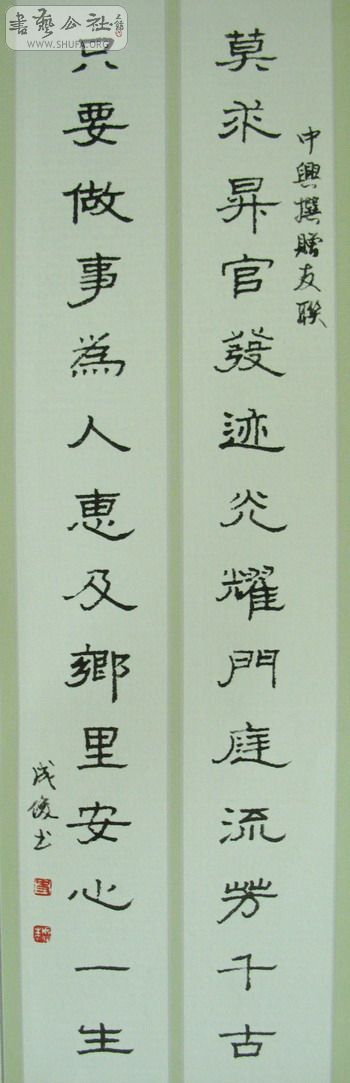 書藝公社
WWW.SHUFA.ORG
中興撰贈友联
莫求昇官發迹光耀門庭流芳千古
只要做事為人惠及鄉里安心一生
成俊书